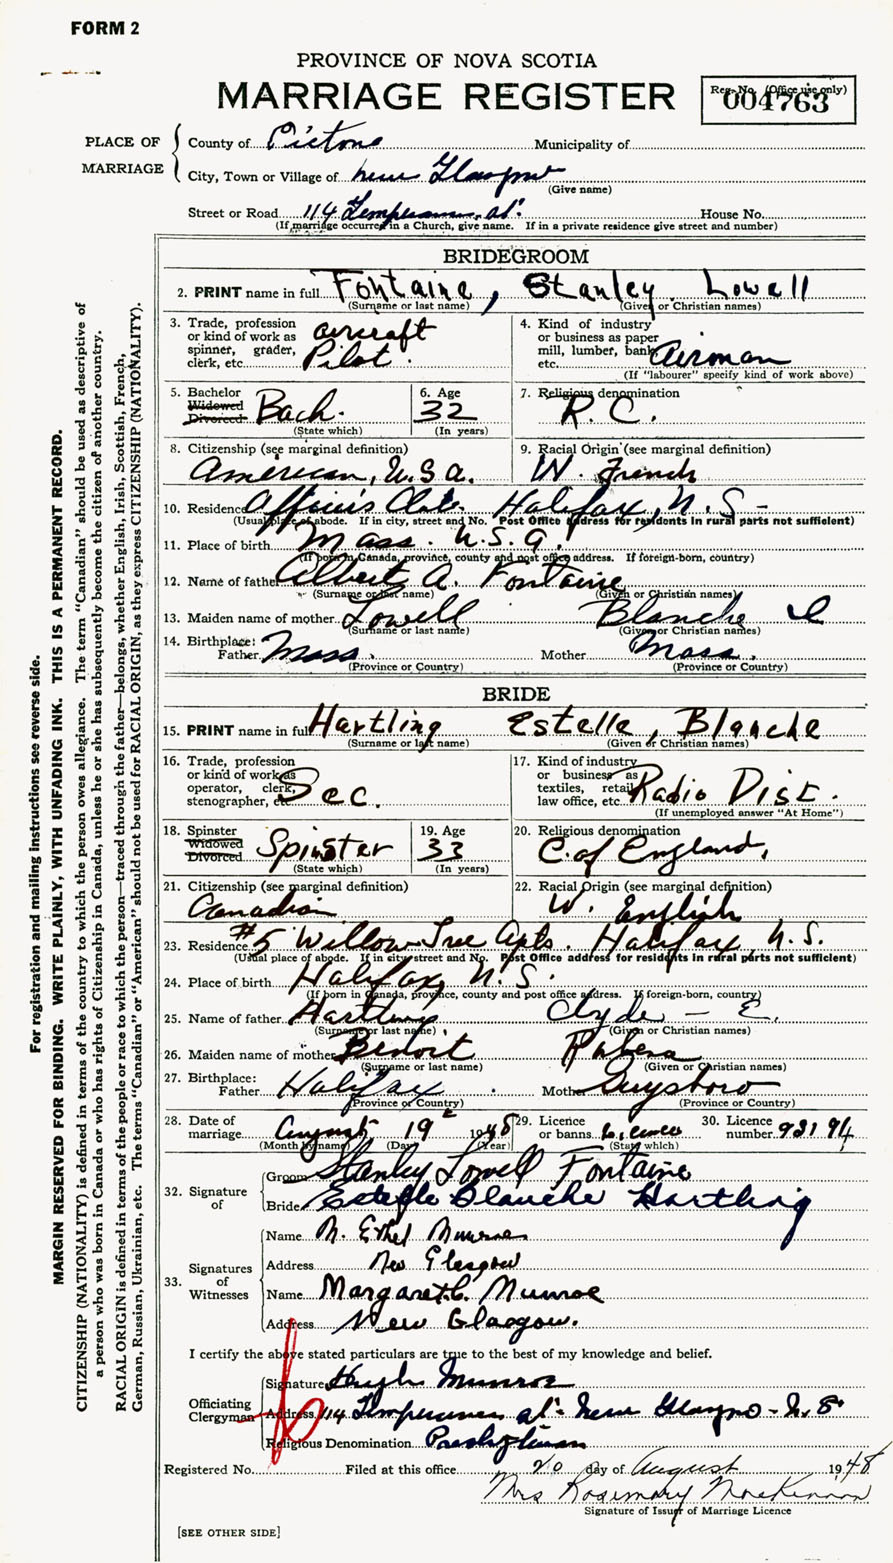 FORM 2
PROVINCE OF NOVA SCOTIA
MARRIAGE REGISTER
Reg. No. (Office use only)
004763
PLACE OF MARRIAGE
County of Pictou Municipality of
City, Town or Village of New Glasgow
(Give name)
Street or Road 114 Temperance St. House No.
(If marriage occurred in a Church, give name. If in a private residence give street and number)
BRIDEGROOM
2. PRINT name in full Fontaine, Stanley Lowell
(Surname or last name) (Given or Christian names)
3. Trade, profession or kind of work as spinner, grader, clerk, etc. aircraft Pilot.
4. Kind of industry or business as paper mill, lumber, bank, etc. Airman
(If "labourer" specify kind of work above)
5. Bachelor Widowed Divorced Bach.
(State which)
6. Age 32
(In years)
7. Religious denomination R.C.
8. Citizenship (see marginal definition) American, U.S.A.
9. Racial Origin (see marginal definition) W. French
10. Residence Halifax, N.S.
(Usual place of abode. If in city, street and No. Post Office address for residents in rural parts not sufficient)
11. Place of birth Mass. U.S.A.
(If born in Canada, province, county and post office address. If foreign-born, country)
12. Name of father Albert A. Fontaine
(Surname or last name) (Given or Christian names)
13. Maiden name of mother Lowell Blanche
(Surname or last name) (Given or Christian names)
14. Birthplace: Father Mass. Mother Mass.
(Province or Country) (Province or Country)
BRIDE
15. PRINT name in full Hartling Estelle, Blanche
(Surname or last name) (Given or Christian names)
16. Trade, profession or kind of work as operator, clerk, stenographer, etc. Sec.
17. Kind of industry or business as textiles, retail, law office, etc. Radio Dist.
(If unemployed answer "At Home")
18. Spinster Widowed Divorced Spinster
(State which)
19. Age 33
(In years)
20. Religious denomination C. of England,
21. Citizenship (see marginal definition) Canadian
22. Racial Origin (see marginal definition) W. English
23. Residence #5 Willow Tree Apts. Halifax, N.S.
(Usual place of abode. If in city, street and No. Post Office address for residents in rural parts not sufficient)
24. Place of birth Halifax, N.S.
(If born in Canada, province, county and post office address. If foreign-born, country)
25. Name of father Hartling Clyde - E.
(Surname or last name) (Given or Christian names)
26. Maiden name of mother Benoit
(Surname or last name) (Given or Christian names)
27. Birthplace: Father Halifax Mother Guysboro
(Province or Country) (Province or Country)
28. Date of marriage August 19 1948
(Month by name) (Day) (Year)
29. Licence or banns License
(State which)
30. Licence number 93194
32. Signature of
Groom Stanley Lowell Fontaine
Bride Estelle Blanche Hartling
33. Signatures of Witnesses
Name M. Ethel Munroe
Address New Glasgow
Name Margaret C. Munroe
Address New Glasgow.
I certify the above stated particulars are true to the best of my knowledge and belief.
Officiating Clergyman
Signature Hugh Munroe
Address 114 Temperance St. New Glasgow - N.S.
Religious Denomination Presbyterian
Registered No. Filed at this office 20 day of August 1948
Mrs Rosemary MacKinnon
Signature of Issuer of Marriage Licence
[SEE OTHER SIDE]
For registration and mailing instructions see reverse side.
MARGIN RESERVED FOR BINDING. WRITE PLAINLY, WITH UNFADING INK. THIS IS A PERMANENT RECORD.
CITIZENSHIP (NATIONALITY) is defined in terms of the country to which the person owes allegiance. The term "Canadian" should be used as descriptive of
a person who was born in Canada or who has rights of Citizenship in Canada, unless he or she has subsequently become the citizen of another country.
RACIAL ORIGIN is defined in terms of the people or race to which the person—traced through the father—belongs, whether English, Irish, Scottish, French,
German, Russian, Ukrainian, etc. The terms "Canadian" or "American" should not be used for RACIAL ORIGIN, as they express CITIZENSHIP (NATIONALITY).